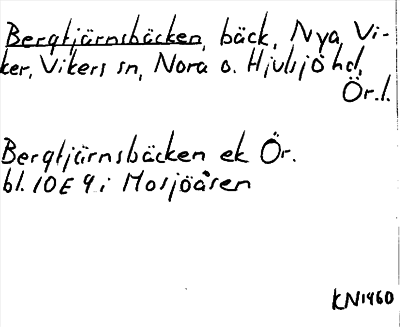 Bergtjärnsbäcken, bäck, Nya Vi-
ker, Vikers sn, Nora o. Hjulsjö hd,
Ör.l.
Bergtjärnsbäcken ek Ör.
bl. 10E 9i Mosjöåsen
KN1960